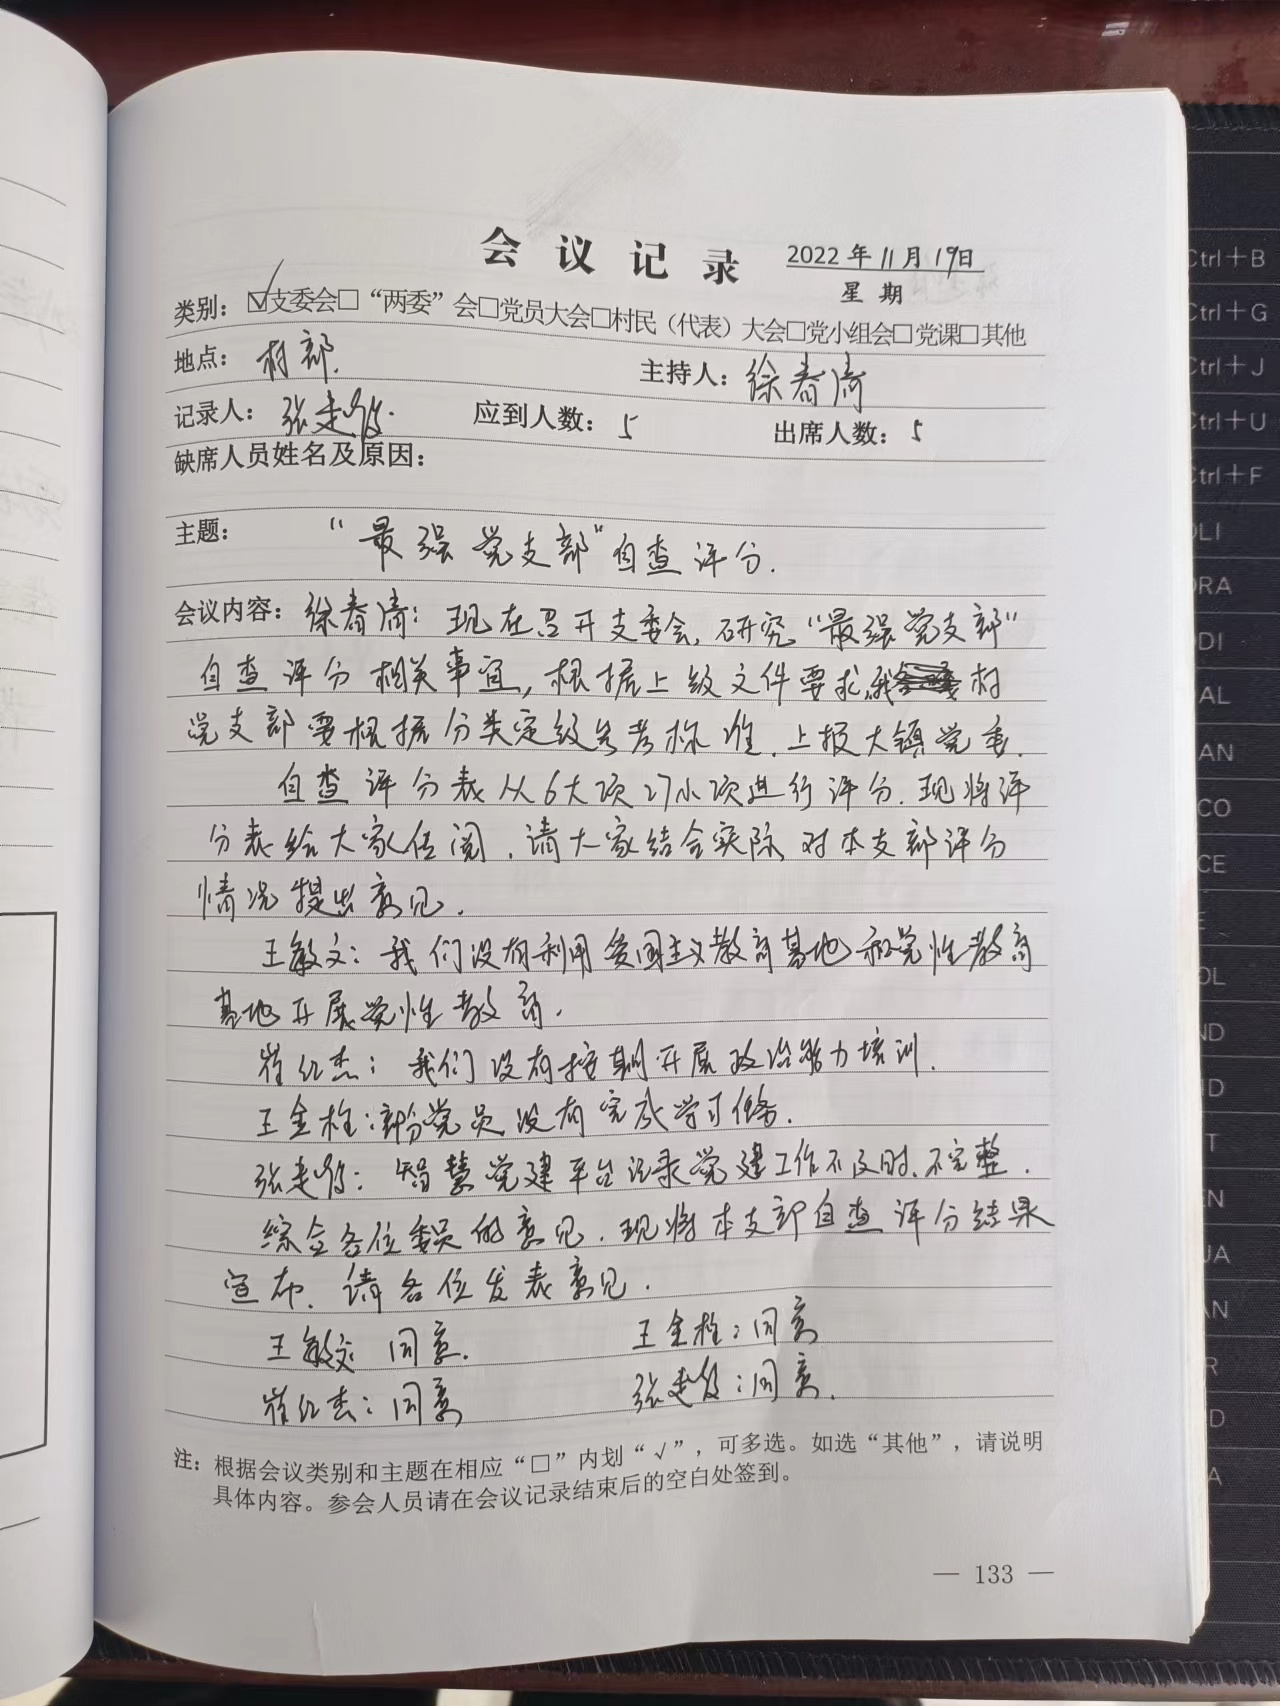 会议记录
2022年11月19日
星期
类别：☑支委会□“两委”会□党员大会□村民（代表）大会□党小组会□党课□其他
地点：村部.
主持人：徐春清
记录人：张走
应到人数：5
出席人数：5
缺席人员姓名及原因：
主题：“最强党支部”自查评分.
会议内容：徐春清：现在召开支委会，研究“最强党支部”
自查评分相关事宜，根据上级文件要求，我村
党支部要根据分类定级参考标准，上报大镇党委.
自查评分表从6大项27小项进行评分.现将评
分表给大家传阅，请大家结合实际，对本支部评分
情况提出意见.
王敏文：我们没有利用爱国主义教育基地和党性教育
基地开展党性教育.
崔红杰：我们没有按期开展政治能力培训.
王金栓：部分党员没有完成学习任务.
张走：智慧党建平台记录党建工作不及时、不完整.
综合各位委员的意见，现将本支部自查评分结果
宣布，请各位发表意见.
王敏文：同意.
王金栓：同意
崔红杰：同意
张走：同意.
注：根据会议类别和主题在相应“□”内划“√”，可多选。如选“其他”，请说明
具体内容。参会人员请在会议记录结束后的空白处签到。
— 133 —
Ctrl+B
Ctrl+G
Ctrl+J
Ctrl+U
Ctrl+F